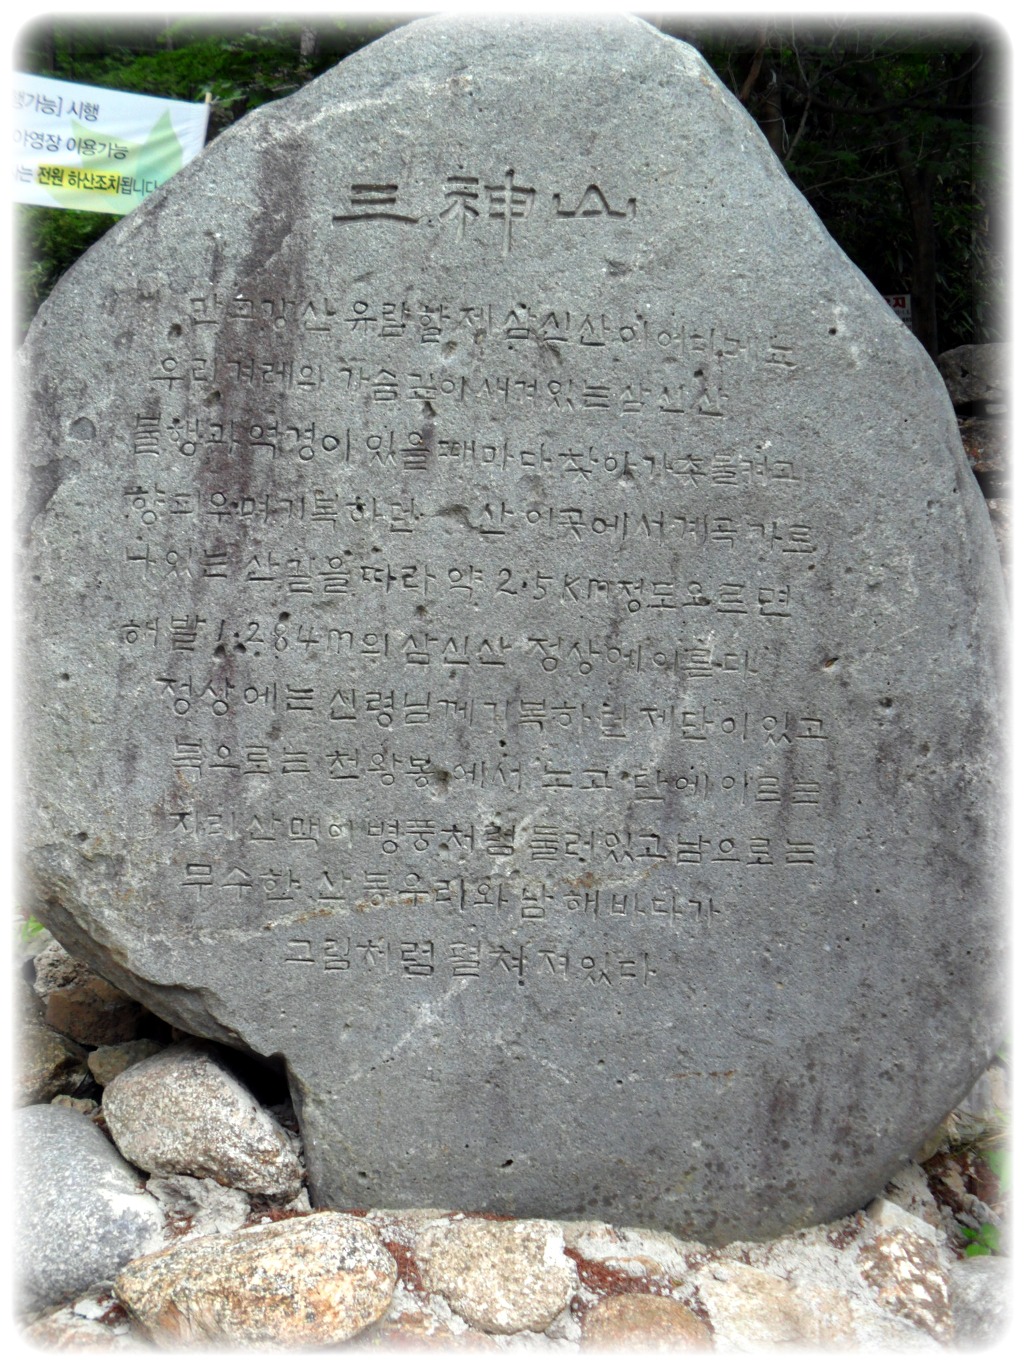 행가능] 시행
야영장 이용가능
는 전원 하산조치됩니다
三神山
만고강산 유람할제 삼신산이 어디메뇨
우리겨레의 가슴깊이 새겨있는 삼신산
불행과 역경이 있을때마다 찾아가 촛불켜고
향피우며 기복하던 산 이곳에서 계곡 가로
나있는 산길을 따라 약 2.5km정도 오르면
해발 1.284m의 삼신산 정상에 이른다
정상에는 신령님께 기복하던 제단이 있고
북으로는 천왕봉에서 노고단에 이르는
지리산맥이 병풍처럼 둘러있고 남으로는
무수한 산봉우리와 남해바다가
그림처럼 펼쳐져있다